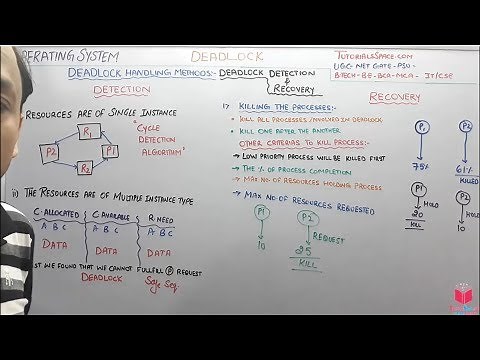 OPERATING SYSTEM
DEADLOCK
TUTORIALSSPACE.COM
UGC-NET GATE-PSU-
BTECH-BE-BCA-MCA- IT/CSE
DEADLOCK HANDLING METHODS:- DEADLOCK DETECTION
&
RECOVERY
DETECTION
RESOURCES ARE OF SINGLE INSTANCE
R1
P2
P1
R2
"CYCLE
DETECTION
ALGORITHM"
ii) THE RESOURCES ARE OF MULTIPLE INSTANCE TYPE
C. ALLOCATED
C AVAILABLE
R. NEED
A B C
A B C
A B C
DATA
DATA
DATA
WE FOUND THAT WE CANNOT FULLFILL P REQUEST
DEADLOCK
Safe Seq
RECOVERY
1) KILLING THE PROCESSES:-
KILL ALL PROCESSES INVOLVED IN DEADLOCK
KILL ONE AFTER THE ANOTHER
OTHER CRITERIAS TO KILL PROCESS:-
→ LOW PRIORITY PROCESS WILL BE KILLED FIRST
→ THE % OF PROCESS COMPLETION
→ MAX NO. OF RESOURCES HOLDING PROCESS
→ MAX NO. OF RESOURCES REQUESTED
P1
10
P2
REQUEST
25
KILL
P1
75%
P2
61%
KILLED
P1
HOLD
20
KILL
P2
HOLD
10